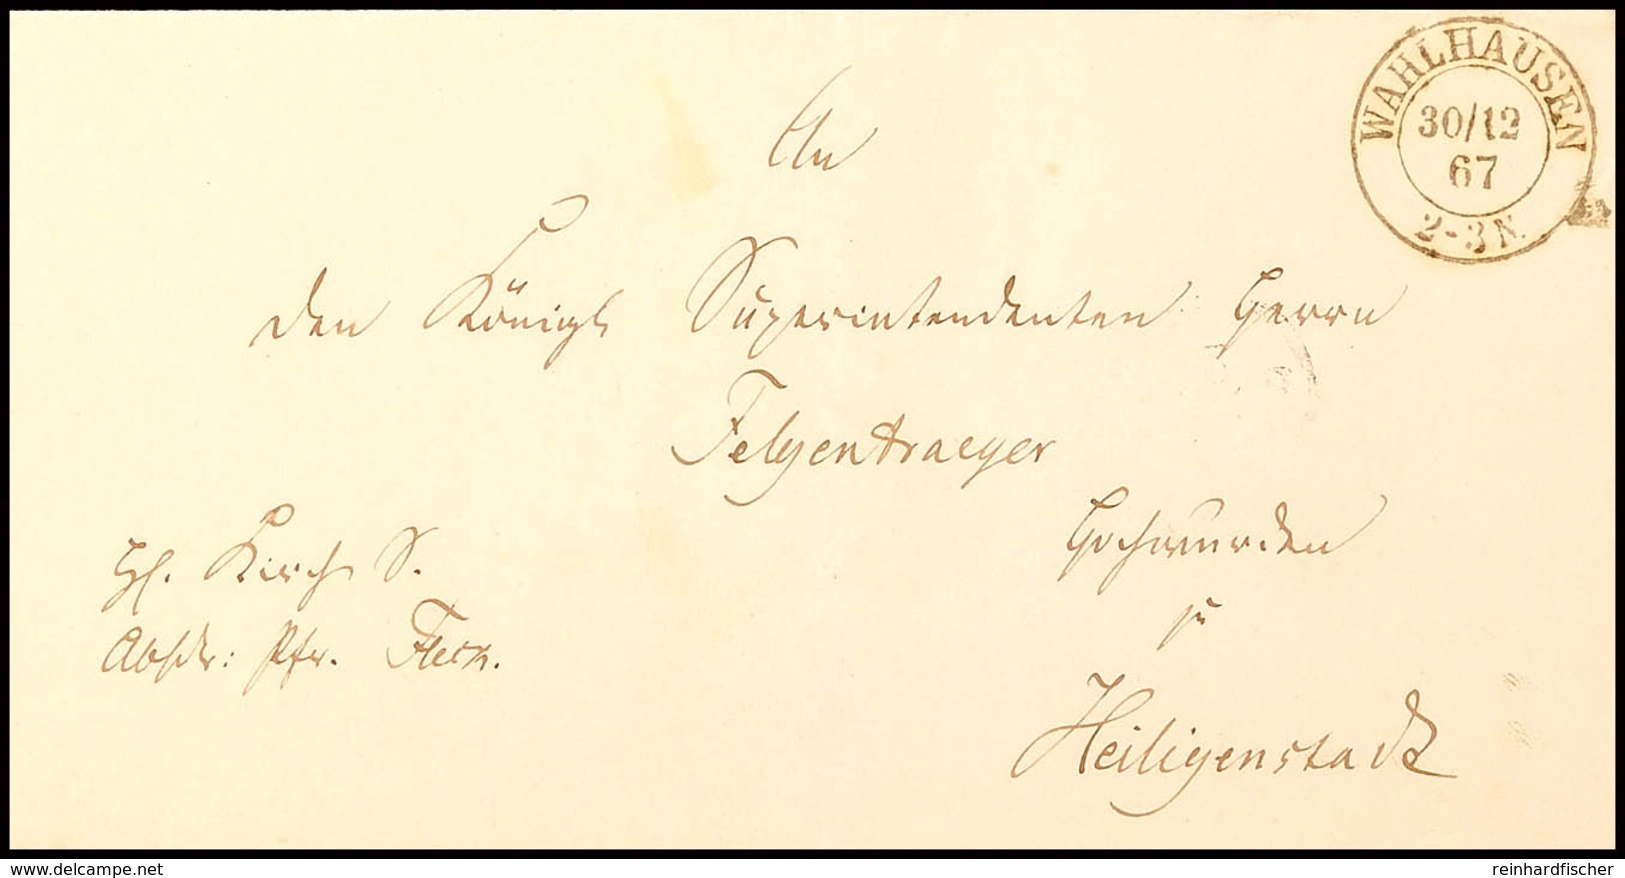 WAHLHAUSEN
30/12
67
2-3 N.
An
den Königl Superintendenten Herrn
Felgentraeger
Hochwürden
zu
Heiligenstadt
Kirch S.
Absdr: Pfr.
delcampe.net
reinhardfischer